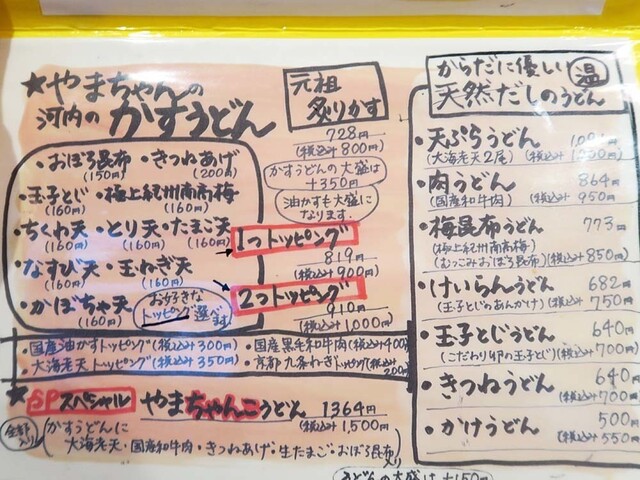 ★やまちゃんの
河内の かすうどん
元祖
炙りかす
728円
(税込み800円)
かすうどんの大盛は
+350円
油かすも大盛に
なります。
・おぼろ昆布
(150円)
・きつねあげ
(200円)
・玉子とじ
(160円)
・極上紀州南高梅
(160円)
・ちくわ天
(160円)
・とり天
(160円)
・たまご天
(160円)
・なすび天
(160円)
・玉ねぎ天
(160円)
・かぼちゃ天
(160円)
お好きな
トッピング選べます
1つトッピング
819円
(税込み900円)
2つトッピング
910円
(税込み1,000円)
・国産油かすトッピング(税込み300円)
・国産黒毛和牛肉(税込み400円)
・大海老天トッピング(税込み350円)
・京都九条ねぎトッピング(税込み200円)
★SPスペシャル やまちゃんこうどん 1364円
(税込み1,500円)
全部入り
(かすうどんに
大海老天・国産和牛肉・きつねあげ・生たまご・おぼろ昆布入り)
からだに優しい 温
天然だしのうどん
・天ぷらうどん
(大海老天2尾)
・肉うどん 864円
(国産和牛肉) (税込み950円)
・梅昆布うどん 773円
(極上紀州南高梅)
(むっこみおぼろ昆布) (税込み850円)
・けいらんうどん 682円
(玉子とじのあんかけ) (税込み750円)
・玉子とじうどん 640円
(こだわり卵の玉子とじ) (税込み700円)
・きつねうどん 640円
(税込み700円)
・かけうどん 500円
(税込み550円)
うどんの大盛は+150円